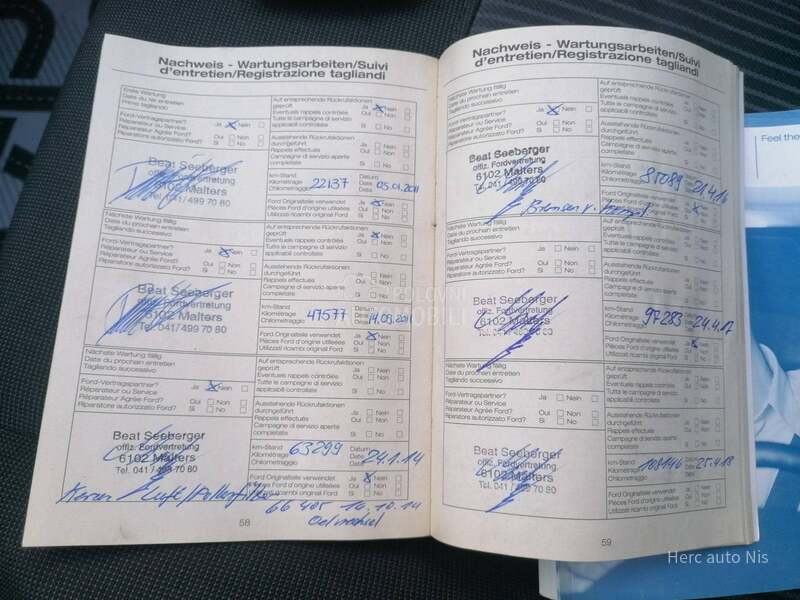 Nachweis - Wartungsarbeiten/Suivi
d'entretien/Registrazione tagliandi
Erste Wartung
Date du 1er entretien
Primo tagliando
Auf entsprechende Rückrufaktionen
geprüft Ja Nein
Eventuels rappels contrôlés Oui Non
Tutte le campagne di servizio Si No
applicabili controllate
Ford-Vertragspartner? Ja Nein
Réparateur ou Service Oui Non
Réparateur Agréé Ford? Si No
Réparatore autorizzato Ford?
Ausstehende Rückrufaktionen
durchgeführt Ja Nein
Rappels effectués Oui Non
Campagne di servizio aperte Si No
completate
Beat Seeberger
offiz. Fordvertretung
6102 Malters
Tel. 041/499 70 80
km-Stand
Kilométrage 22137
Chilometraggio
Datum
Date 05.01.2011
Data
Ford Originalteile verwendet Ja Nein
Pièces Ford d'origine utilisées Oui Non
Utilizzati ricambi original Ford Si No
Nächste Wartung fällig
Date du prochain entretien
Tagliando successivo
Auf entsprechende Rückrufaktionen
geprüft Ja Nein
Eventuels rappels contrôlés Oui Non
Tutte le campagne di servizio Si No
applicabili controllate
Ford-Vertragspartner? Ja Nein
Réparateur ou Service Oui Non
Réparateur Agréé Ford? Si No
Réparatore autorizzato Ford?
Ausstehende Rückrufaktionen
durchgeführt Ja Nein
Rappels effectués Oui Non
Campagne di servizio aperte Si No
completate
Beat Seeberger
offiz. Fordvertretung
6102 Malters
Tel. 041/499 70 80
km-Stand
Kilométrage 47577
Chilometraggio
Datum
Date
Data
Ford Originalteile verwendet Ja Nein
Pièces Ford d'origine utilisées Oui Non
Utilizzati ricambi original Ford Si No
Nächste Wartung fällig
Date du prochain entretien
Tagliando successivo
Auf entsprechende Rückrufaktionen
geprüft Ja Nein
Eventuels rappels contrôlés Oui Non
Tutte le campagne di servizio Si No
applicabili controllate
Ford-Vertragspartner? Ja Nein
Réparateur ou Service Oui Non
Réparateur Agréé Ford? Si No
Réparatore autorizzato Ford?
Ausstehende Rückrufaktionen
durchgeführt Ja Nein
Rappels effectués Oui Non
Campagne di servizio aperte Si No
completate
Beat Seeberger
offiz. Fordvertretung
6102 Malters
Tel. 041/499 70 80
km-Stand
Kilométrage 63299
Chilometraggio
Datum
Date 24.1.14
Data
Ford Originalteile verwendet Ja Nein
Pièces Ford d'origine utilisées Oui Non
Utilizzati ricambi original Ford Si No
66 405 16.10.14
Oelwechsel
58
Nachweis - Wartungsarbeiten/Suivi
d'entretien/Registrazione tagliandi
Nächste Wartung fällig
Date du prochain entretien
Tagliando successivo
Auf entsprechende Rückrufaktionen
geprüft Ja Nein
Eventuels rappels contrôlés Oui Non
Tutte le campagne di servizio Si No
applicabili controllate
Ford-Vertragspartner? Ja Nein
Réparateur ou Service Oui Non
Réparateur Agréé Ford? Si No
Réparatore autorizzato Ford?
Ausstehende Rückrufaktionen
durchgeführt Ja Nein
Rappels effectués Oui Non
Campagne di servizio aperte Si No
completate
Beat Seeberger
offiz. Fordvertretung
6102 Malters
Tel. 041/499 70 80
km-Stand
Kilométrage
Chilometraggio
Datum
Date 21.4.16
Data
Bremsen v.
Ford Originalteile verwendet Ja Nein
Pièces Ford d'origine utilisées Oui Non
Utilizzati ricambi original Ford Si No
Nächste Wartung fällig
Date du prochain entretien
Tagliando successivo
Auf entsprechende Rückrufaktionen
geprüft Ja Nein
Eventuels rappels contrôlés Oui Non
Tutte le campagne di servizio Si No
applicabili controllate
Ford-Vertragspartner? Ja Nein
Réparateur ou Service Oui Non
Réparateur Agréé Ford? Si No
Réparatore autorizzato Ford?
Ausstehende Rückrufaktionen
durchgeführt Ja Nein
Rappels effectués Oui Non
Campagne di servizio aperte Si No
completate
Beat Seeberger
offiz. Fordvertretung
6102 Malters
Tel. 041/499 70 80
km-Stand
Kilométrage 97283
Chilometraggio
Datum
Date 24.4.17
Data
Ford Originalteile verwendet Ja Nein
Pièces Ford d'origine utilisées Oui Non
Utilizzati ricambi original Ford Si No
Nächste Wartung fällig
Date du prochain entretien
Tagliando successivo
Auf entsprechende Rückrufaktionen
geprüft Ja Nein
Eventuels rappels contrôlés Oui Non
Tutte le campagne di servizio Si No
applicabili controllate
Ford-Vertragspartner? Ja Nein
Réparateur ou Service Oui Non
Réparateur Agréé Ford? Si No
Réparatore autorizzato Ford?
Ausstehende Rückrufaktionen
durchgeführt Ja Nein
Rappels effectués Oui Non
Campagne di servizio aperte Si No
completate
Beat Seeberger
offiz. Fordvertretung
6102 Malters
Tel. 041/499 70 80
km-Stand
Kilométrage 108146
Chilometraggio
Datum
Date 25.4.18
Data
Ford Originalteile verwendet Ja Nein
Pièces Ford d'origine utilisées Oui Non
Utilizzati ricambi original Ford Si No
59
Feel the
Herc auto Nis